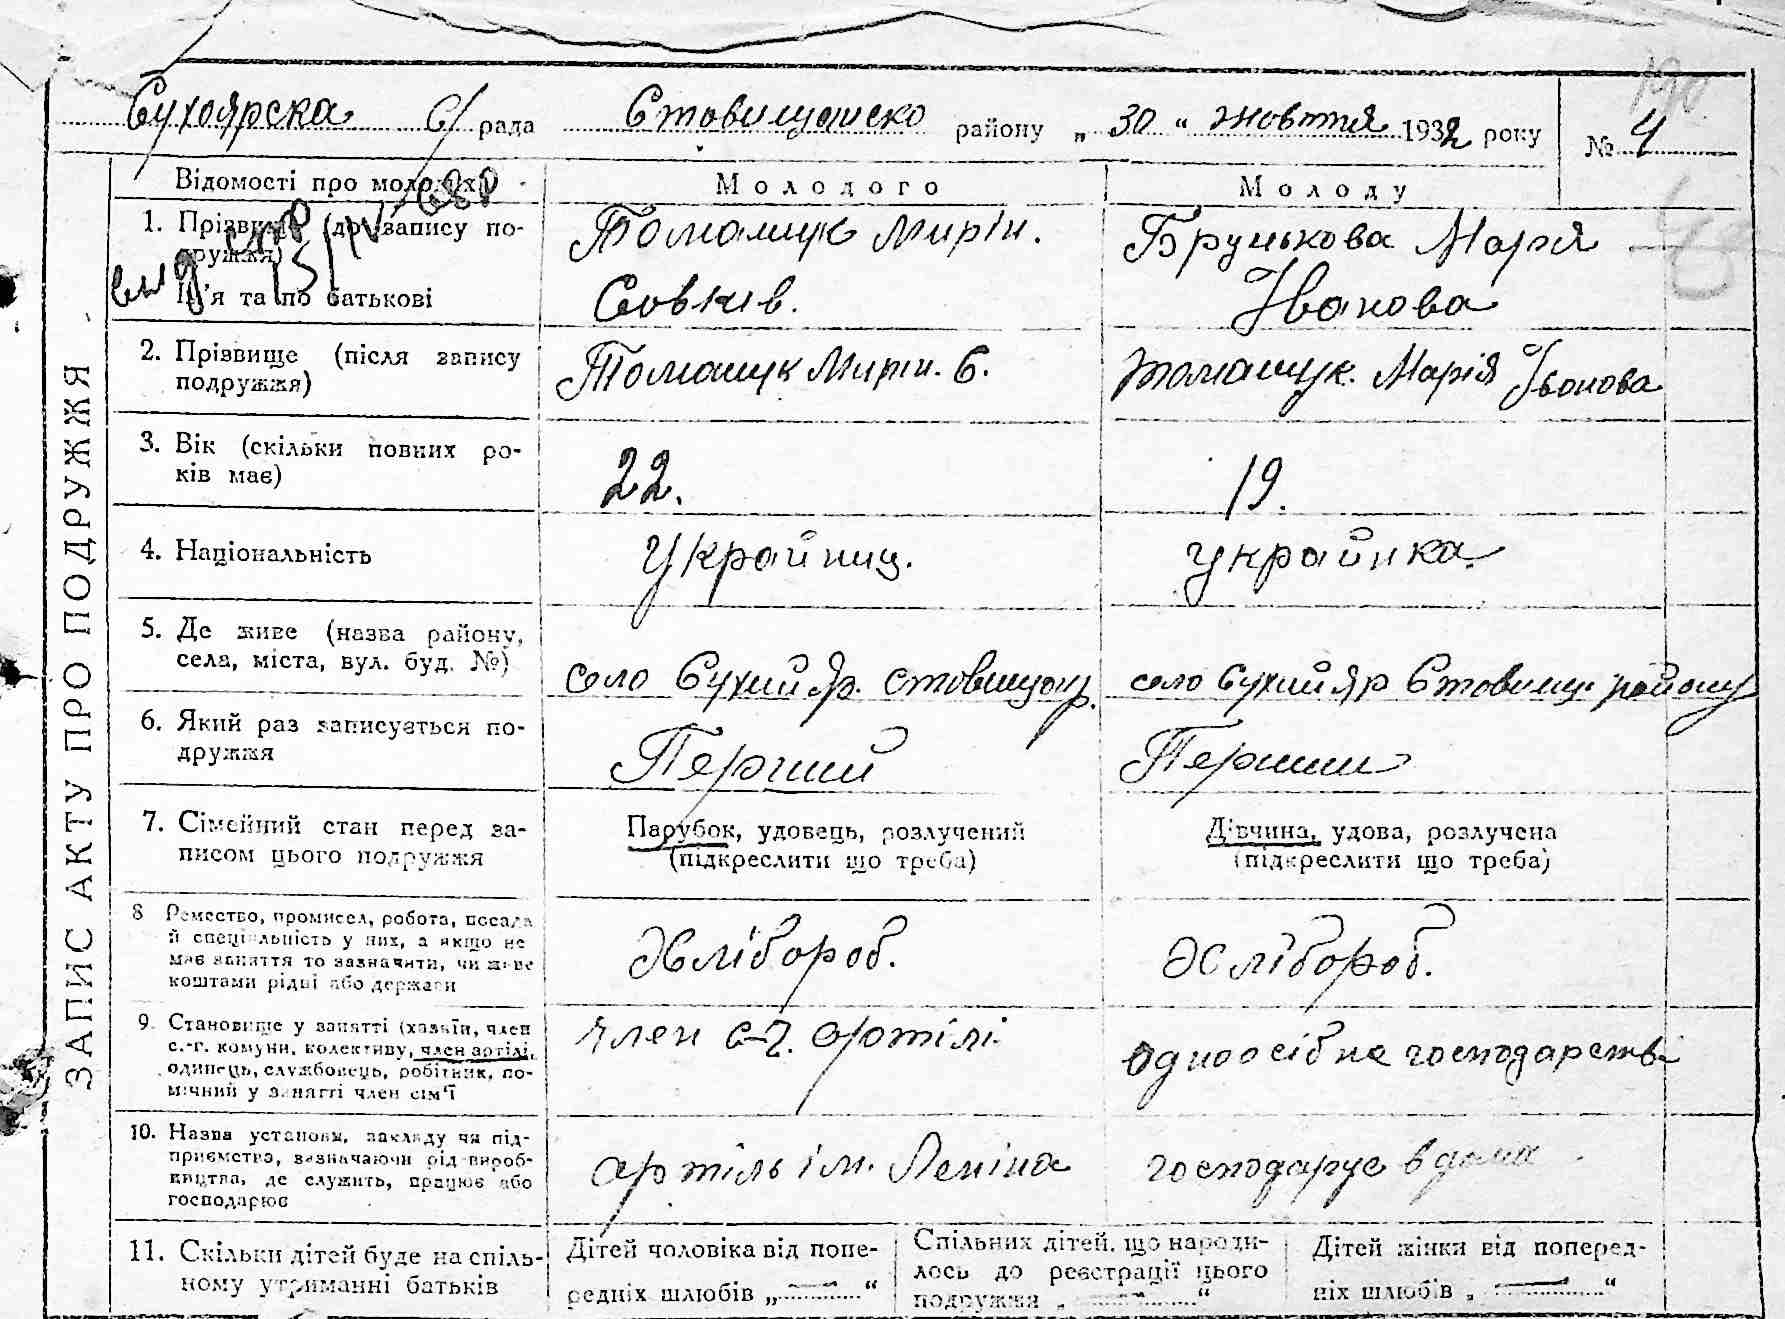 Сухоярска с/рада Ставищанско району „30" жовтня 1932 року № 4
ЗАПИС АКТУ ПРО ПОДРУЖЖЯ
Відомості про молодих
Молодого
Молоду
1. Прізвище (до запису по-
дружжя)
Ім'я та по батькові
Томащук Мирін.
Совків.
Брунькова Марія
Іванова
2. Прізвище (після запису
подружжя)
Томащук Мирін. С.
Томащук. Марія Іванова
3. Вік (скільки повних ро-
ків має)
22.
19.
4. Національність
Українц.
українка.
5. Де живе (назва району,
села, міста, вул. буд. №)
село Сухий Яр. Ставищан р.
село Сухий Яр Ставищ. району
6. Який раз записується по-
дружжя
Перший
Перший
7. Сімейний стан перед за-
писом цього подружжя
Парубок, удовець, розлучений
(підкреслити що треба)
Дівчина, удова, розлучена
(підкреслити що треба)
8 Ремество, промисел, робота, посада
й спеціяльність у них, а якщо не
має заняття то зазначити, чи живе
коштами рідні або держави
Хлібороб.
Хлібороб.
9. Становище у занятті (хазяїн, член
с.-г. комуни, колективу, член артілі,
одинець, службовець, робітник, по-
мічний у занятті член сім'ї
Член с-г. артілі
одноосібне господарств
10. Назва установи, закладу чи під-
приємства, зазначаючи рід вироб-
ництва, де служить, працює або
господарює
артіль ім. Леніна
господарує вдома
11. Скільки дітей буде на спіль-
ному утриманні батьків
Дітей чоловіка від попе-
редніх шлюбів „ — "
Спільних дітей, що народи-
лось до реєстрації цього
подружжя „ — "
Дітей жінки від поперед-
ніх шлюбів „ — "